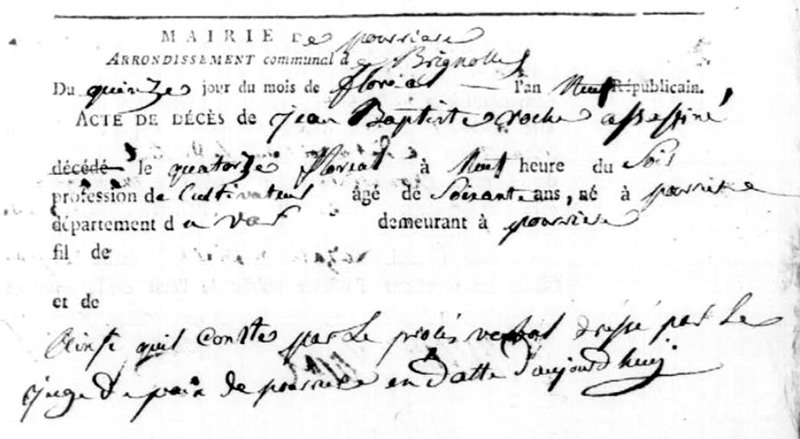 MAIRIE de pourriere
ARRONDISSEMENT communal de Brignolles
Du quinze jour du mois de floréal l'an Neuf Républicain.
ACTE DE DÉCÈS de Jean Baptiste roche assassiné
décédé le quatorze floréal à Neuf heure du Soir
profession de Cultivateur âgé de Soixante ans, né à pourriere
département du var demeurant à pourriere
fil de
et de
Ainsi qu'il Conste par Le procès verbal dressé par Le
juge de paix de pourriere en datte d'aujourd'huy